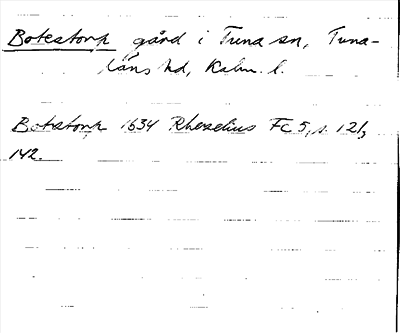 Botestorp gård i Tuna sn, Tuna-
läns hd, Kalm. l.
Botstorp 1634 Rhezelius FC 5, s. 121,
142.